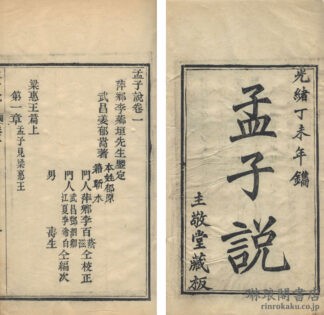 光緒丁未年鐫
孟子說
主敬堂藏板
琳琅閣書店
rinrokaku.co.jp
孟子說卷一
萍鄉李
先生鑒定
武昌姜郁嵩著
本姓鄒原
籍蘄水
門人萍鄉李百
仝校正
門人
仝編次
江夏李
男
壽生
梁惠王篇上
第一章孟子見梁惠王